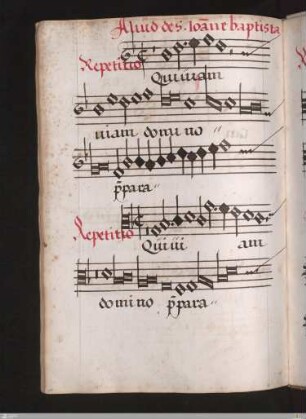 Aliud de S. Ioāne baptista
Repetitio
Qui uiam
uiam domino
p̄para
Repetitio
Qui ui am
domino p̄para